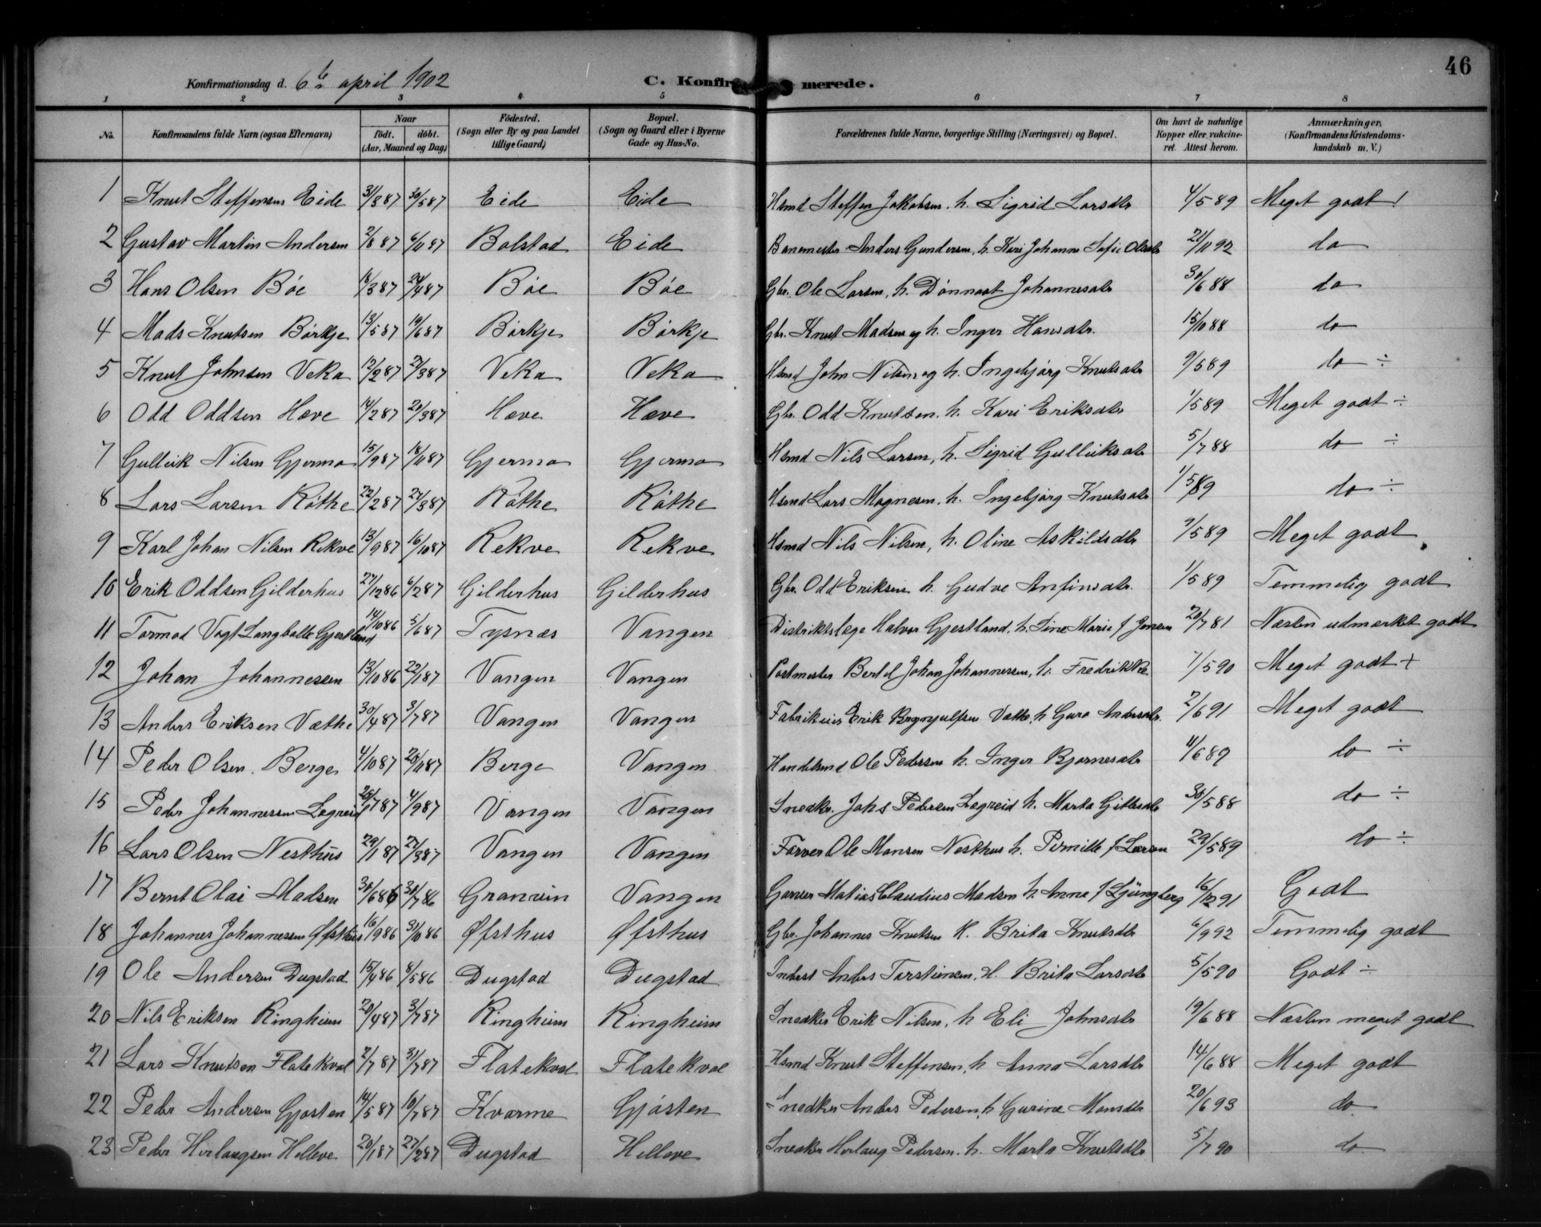 46
Konfirmationsdag d. 6te april 1902 C. Konfirmerede.
1 2 3 4 5 6 7 8
No. Konfirmandens fulde Navn (ogsaa Efternavn) Naar født. døbt. (Aar, Maaned og Dag) Fødested. (Sogn eller By og paa Landet tillige Gaard) Bopæl. (Sogn og Gaard eller i Byerne Gade og Hus-No. Forældrenes fulde Navne, borgerlige Stilling (Næringsvei) og Bopæl. Om havt de naturlige Kopper eller vakcineret. Attest herom. Anmærkninger, (Konfirmandens Kristendomskundskab m. V.)
1 Knut Steffensen Eide 31/3 87 30/5 87 Eide Eide Hsmd Steffen Jakobsen, h. Sigrid Larsdtr 4/5 89 Meget godt!
2 Gustav Martin Andersen 2/8 87 6/10 87 Bolstad Eide Banemester Anders Gundersen, h. Kari Johanne Sofie Olsdtr 21/10 92 do
3 Hans Olsen Bøe 18/3 87 24/4 87 Bøe Bøe Gbr. Ole Larsen, h. Dønnaat Johannesdtr 30/6 88 do
4 Mads Knutsen Børkje 13/5 87 19/6 87 Børkje Børkje Gbr. Knut Madsen og h. Inger Hansdtr. 15/10 88 do
5 Knut Johnsen Veka 12/2 87 27/3 87 Veka Veka Hsmd John Nilsen og h. Ingebjørg Knutsdtr 9/5 89 do ÷
6 Odd Oddsen Hæve 14/2 87 20/3 87 Hæve Hæve Gbr. Odd Knutsen, h. Kari Eriksdtr 1/5 89 Meget godt ÷
7 Gulleik Nilsen Gjerma 15/9 87 18/10 87 Gjerma Gjerma Hsmd Nils Larsen, h. Sigrid Gulleiksdtr 5/7 88 do ÷
8 Lars Larsen Røthe 22/2 87 27/3 87 Røthe Røthe Hsmd Lars Magnesen, h. Ingebjørg Knutsdtr 1/5 89 do ÷
9 Karl Johan Nilsen Rekve 13/9 87 16/10 87 Rekve Rekve Hsmd Nils Nilsen, h. Oline Askildsdtr 9/5 89 Meget godt
10 Erik Oddsen Gilderhus 27/12 86 6/2 87 Gilderhus Gilderhus Gbr. Odd Eriksen h. Gudve Anfinsdtr 1/5 89 Temmelig godt
11 Tormod Vogt Langballe Gjestland 14/10 86 5/6 87 Tysnæs Vangen Distriktslæge Halvor Gjestland, h. Line Marie f. Jensen 20/7 81 Næsten udmerket godt
12 Johan Johannessen 13/10 86 22/1 87 Vangen Vangen Postmester Bertel Johan Johannessen, h. Fredrikke 7/5 90 Meget godt +
13 Anders Eriksen Væthe 30/4 87 3/7 87 Vangen Vangen Fabrikeier Erik Brynjulfsen Væthe h. Guro Andersdtr. 2/6 91 Meget godt
14 Peder Olsen Berge 4/10 87 23/10 87 Berge Vangen Handelsmd Ole Pedersen h. Inger Bjørnesdtr 4/6 89 do ÷
15 Peder Johannessen Lægreid 26/7 87 4/9 87 Vangen Vangen Snedker. Johs Pedersen Lægreid h. Marta Gitlesdtr 30/5 88 do ÷
16 Lars Olsen Nesthus 29/1 87 27/3 87 Vangen Vangen Farver Ole Monsen Nesthus h. Pernille f. Larsen 29/5 89 do ÷
17 Bernt Olai Madsen 30/6 86 30/7 86 Granvin Vangen Garver Matias Claudius Madsen h. Anne f. Ljungberg 16/12 91 Godt
18 Johannes Johannessen Øfsthus 16/9 86 31/10 86 Øfsthus Øfsthus Gbr. Johannes Knutsen h. Brita Knutsdtr 6/9 92 Temmelig godt
19 Ole Andersen Dugstad 15/4 86 6/5 86 Dugstad Dugstad Inderst Anders Torsteinsen, h. Brita Larsdtr 5/5 90 Godt ÷
20 Nils Eriksen Ringheim 20/4 87 3/7 87 Ringheim Ringheim Snedker Erik Nilsen, h. Eli Johnsdtr 19/6 88 Næsten meget godt
21 Lars Knutsen Flatekval 2/7 87 31/7 87 Flatekval Flatekval Hsmd Knut Steffensen, h. Anna Larsdtr 14/6 88 Meget godt
22 Peder Andersen Gjøsten 14/5 87 10/7 87 Kvarme Gjøsten Snedker Anders Pedersen, h. Gurine Monsdtr 20/6 93 do
23 Peder Herlaugsen Helleve 20/1 87 27/2 87 Dugstad Helleve Snedker Herlaug Pedersen. h. Marta Knutsdtr 5/7 90 do